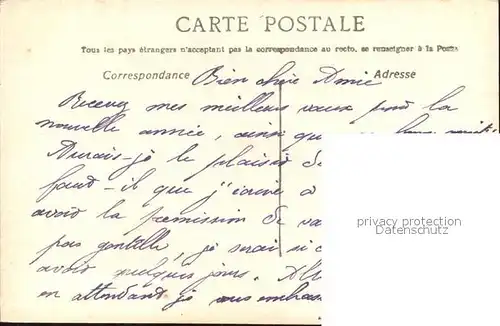 CARTE POSTALE
Tous les pays étrangers n'acceptant pas la correspondance au recto, se renseigner à la Poste
Correspondance Bien chère Amie Adresse
Recevez mes meilleurs vœux pour la
nouvelle année, ainsi que
Aurais-je le plaisir de
faut-il que j'écrive à
avoir la permission de
pas gentille, je serai si
avoir quelques jours.
en attendant je vous embrasse
privacy protection
Datenschutz